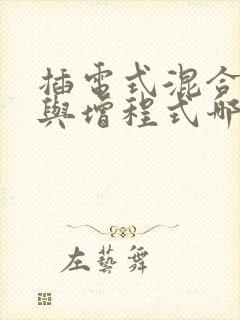 插電式混合
與增程式哪
左藝舞